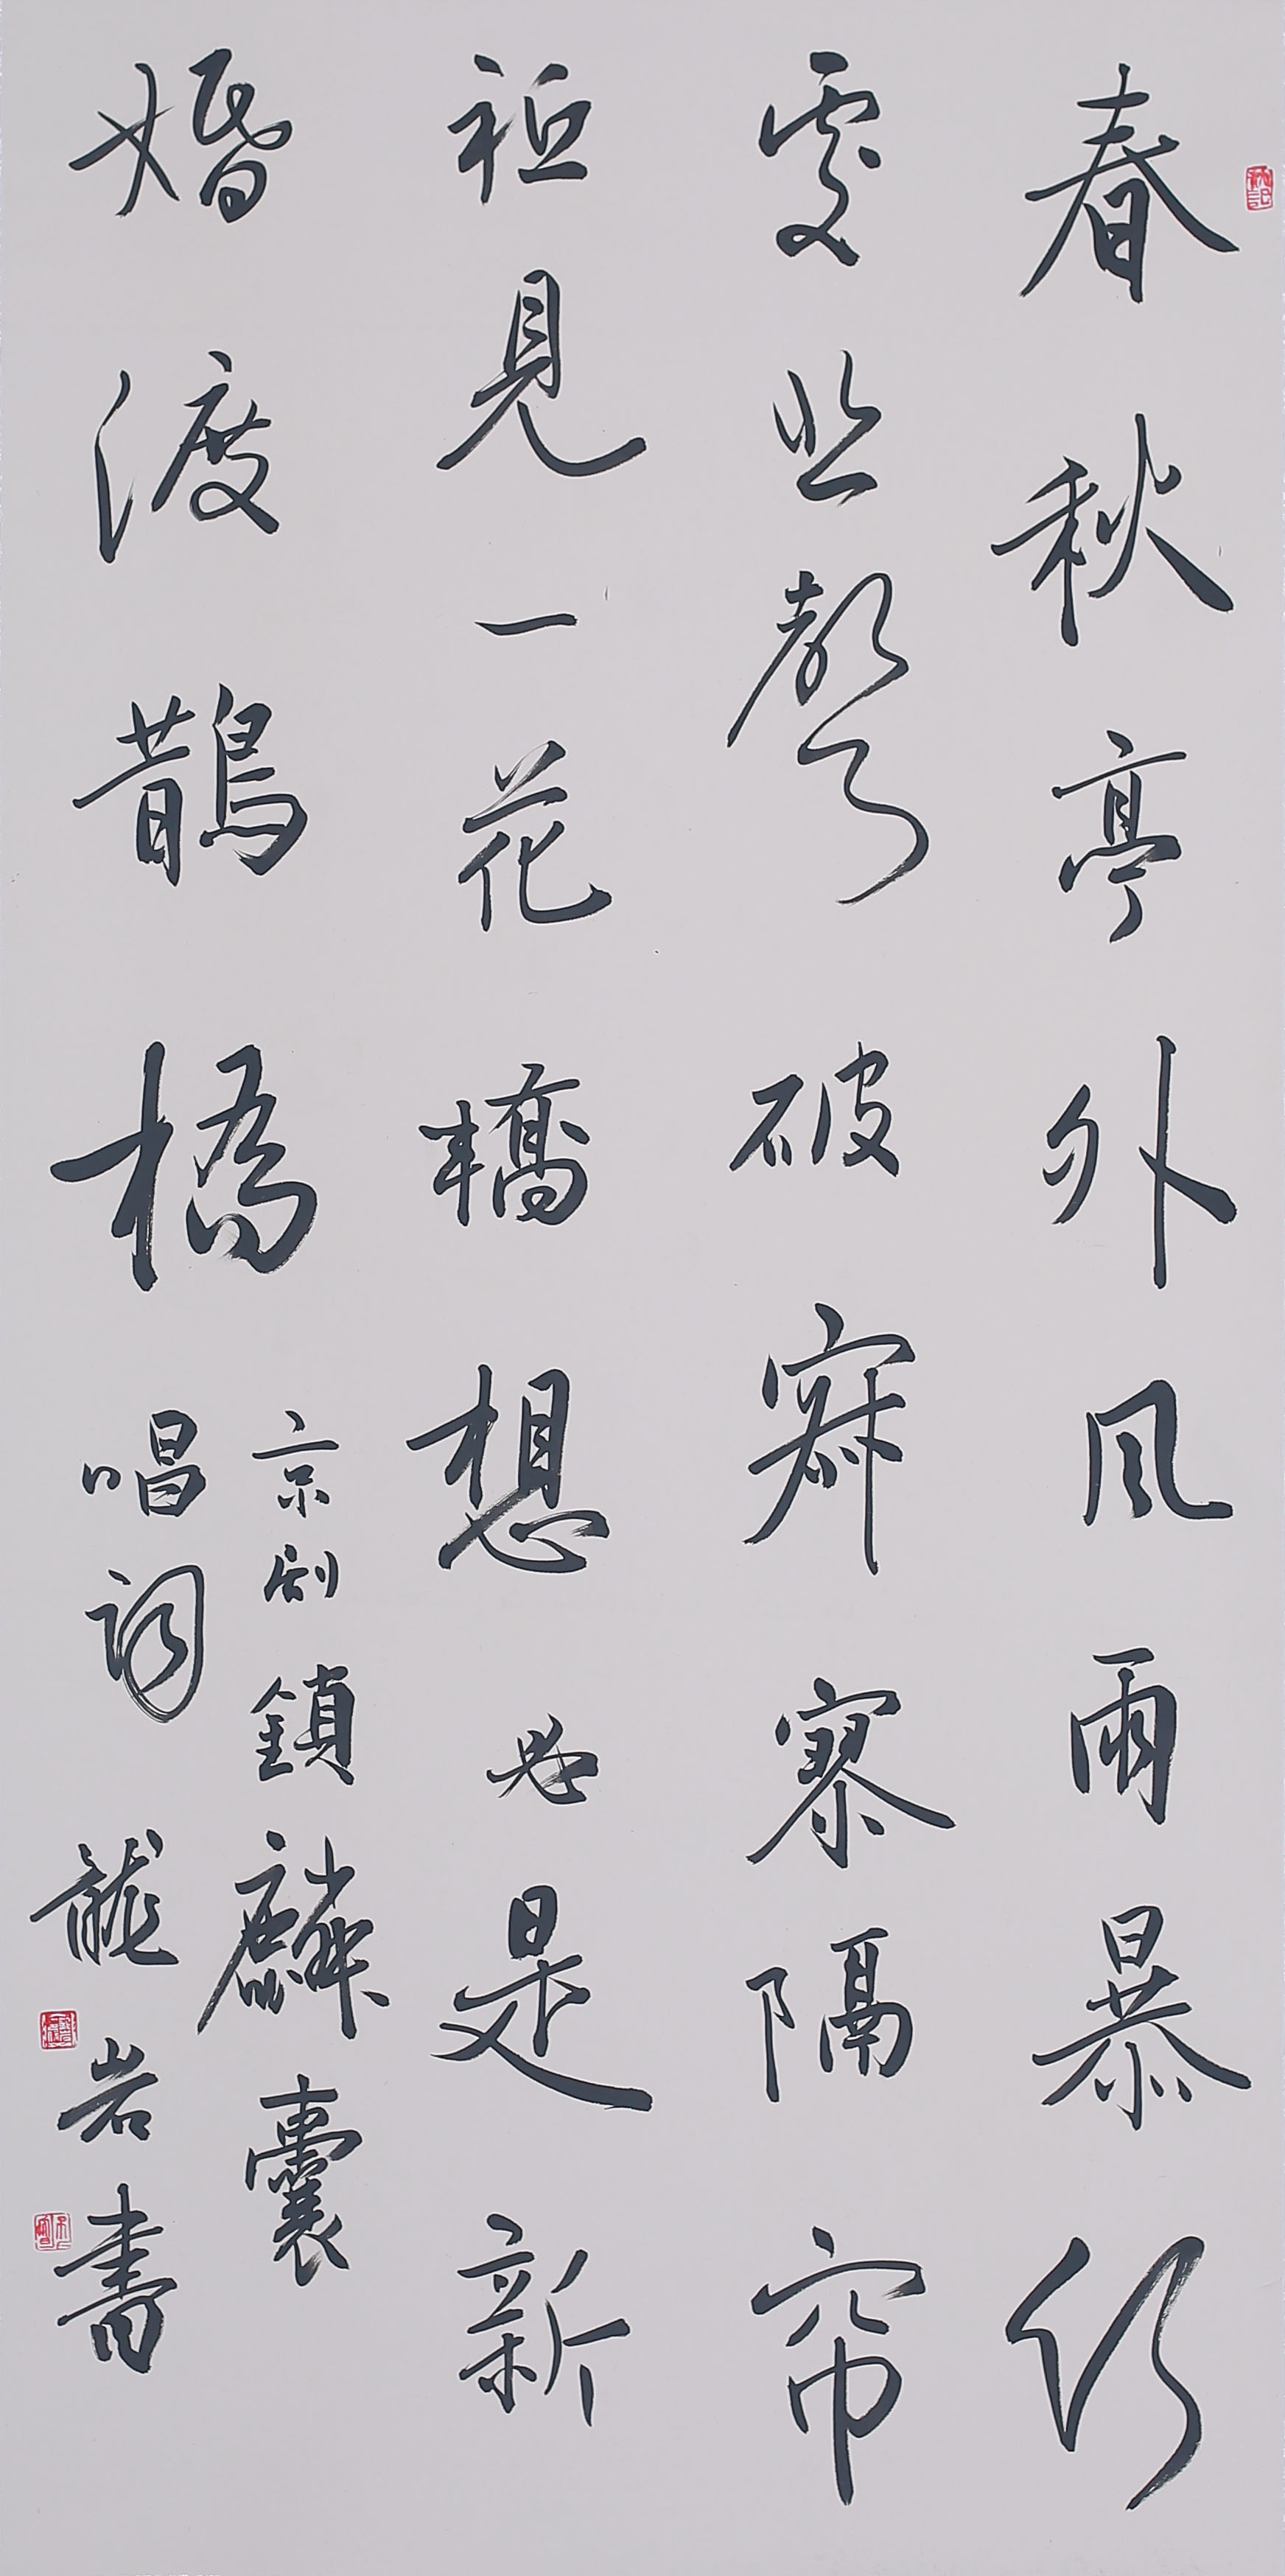 春秋亭外风雨暴何
處悲聲破寂寥隔帘
衹見一花轎想必是新
婚渡鵲橋
京剧鎖麟囊
唱詞
龍岩書